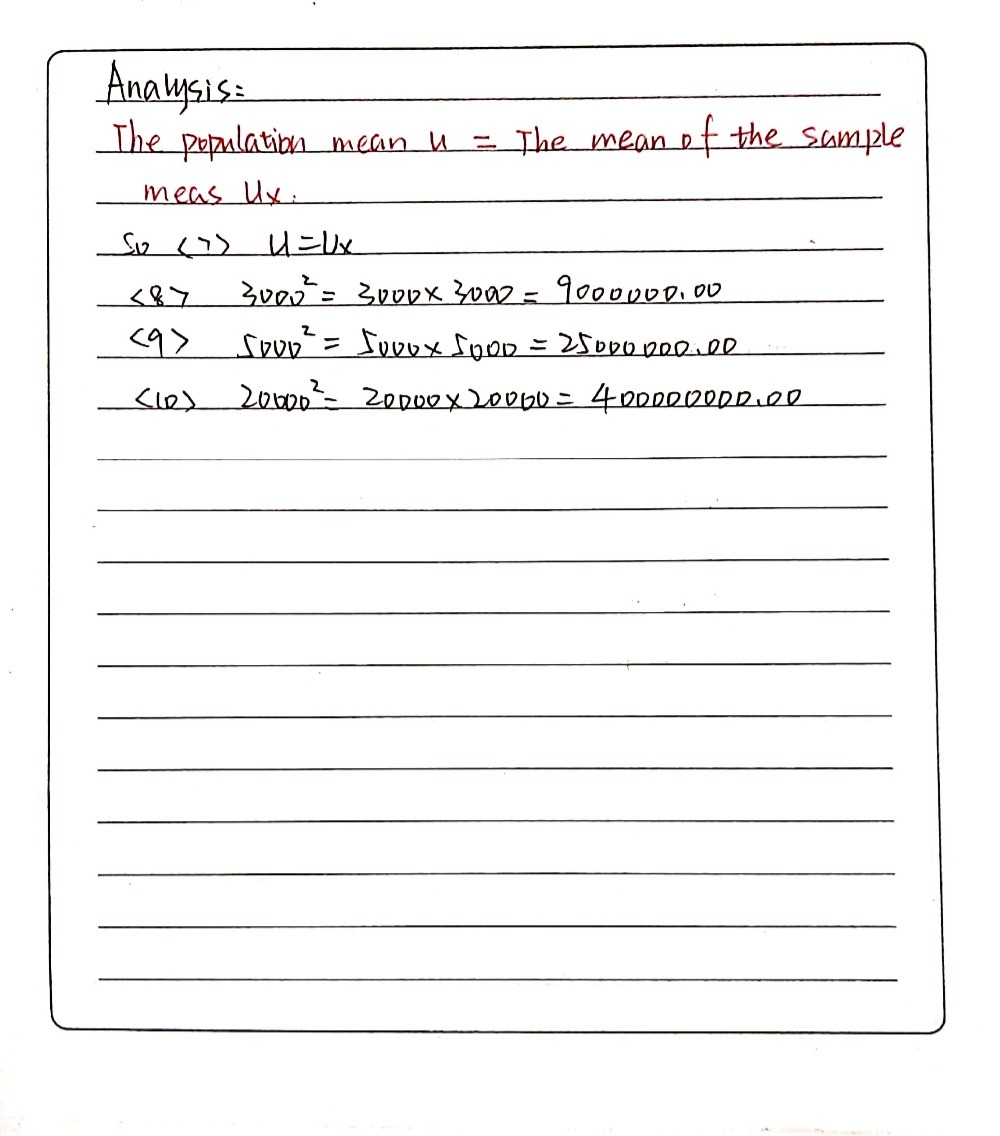 Analysis:
The population mean u = The mean of the sample
meas Ux.
So <7> U=Ux
<8> 3000²= 3000×3000= 9000000.00
<9> 5000² = 5000×5000 = 25000000.00
<10> 20000²= 20000×20000= 400000000.00